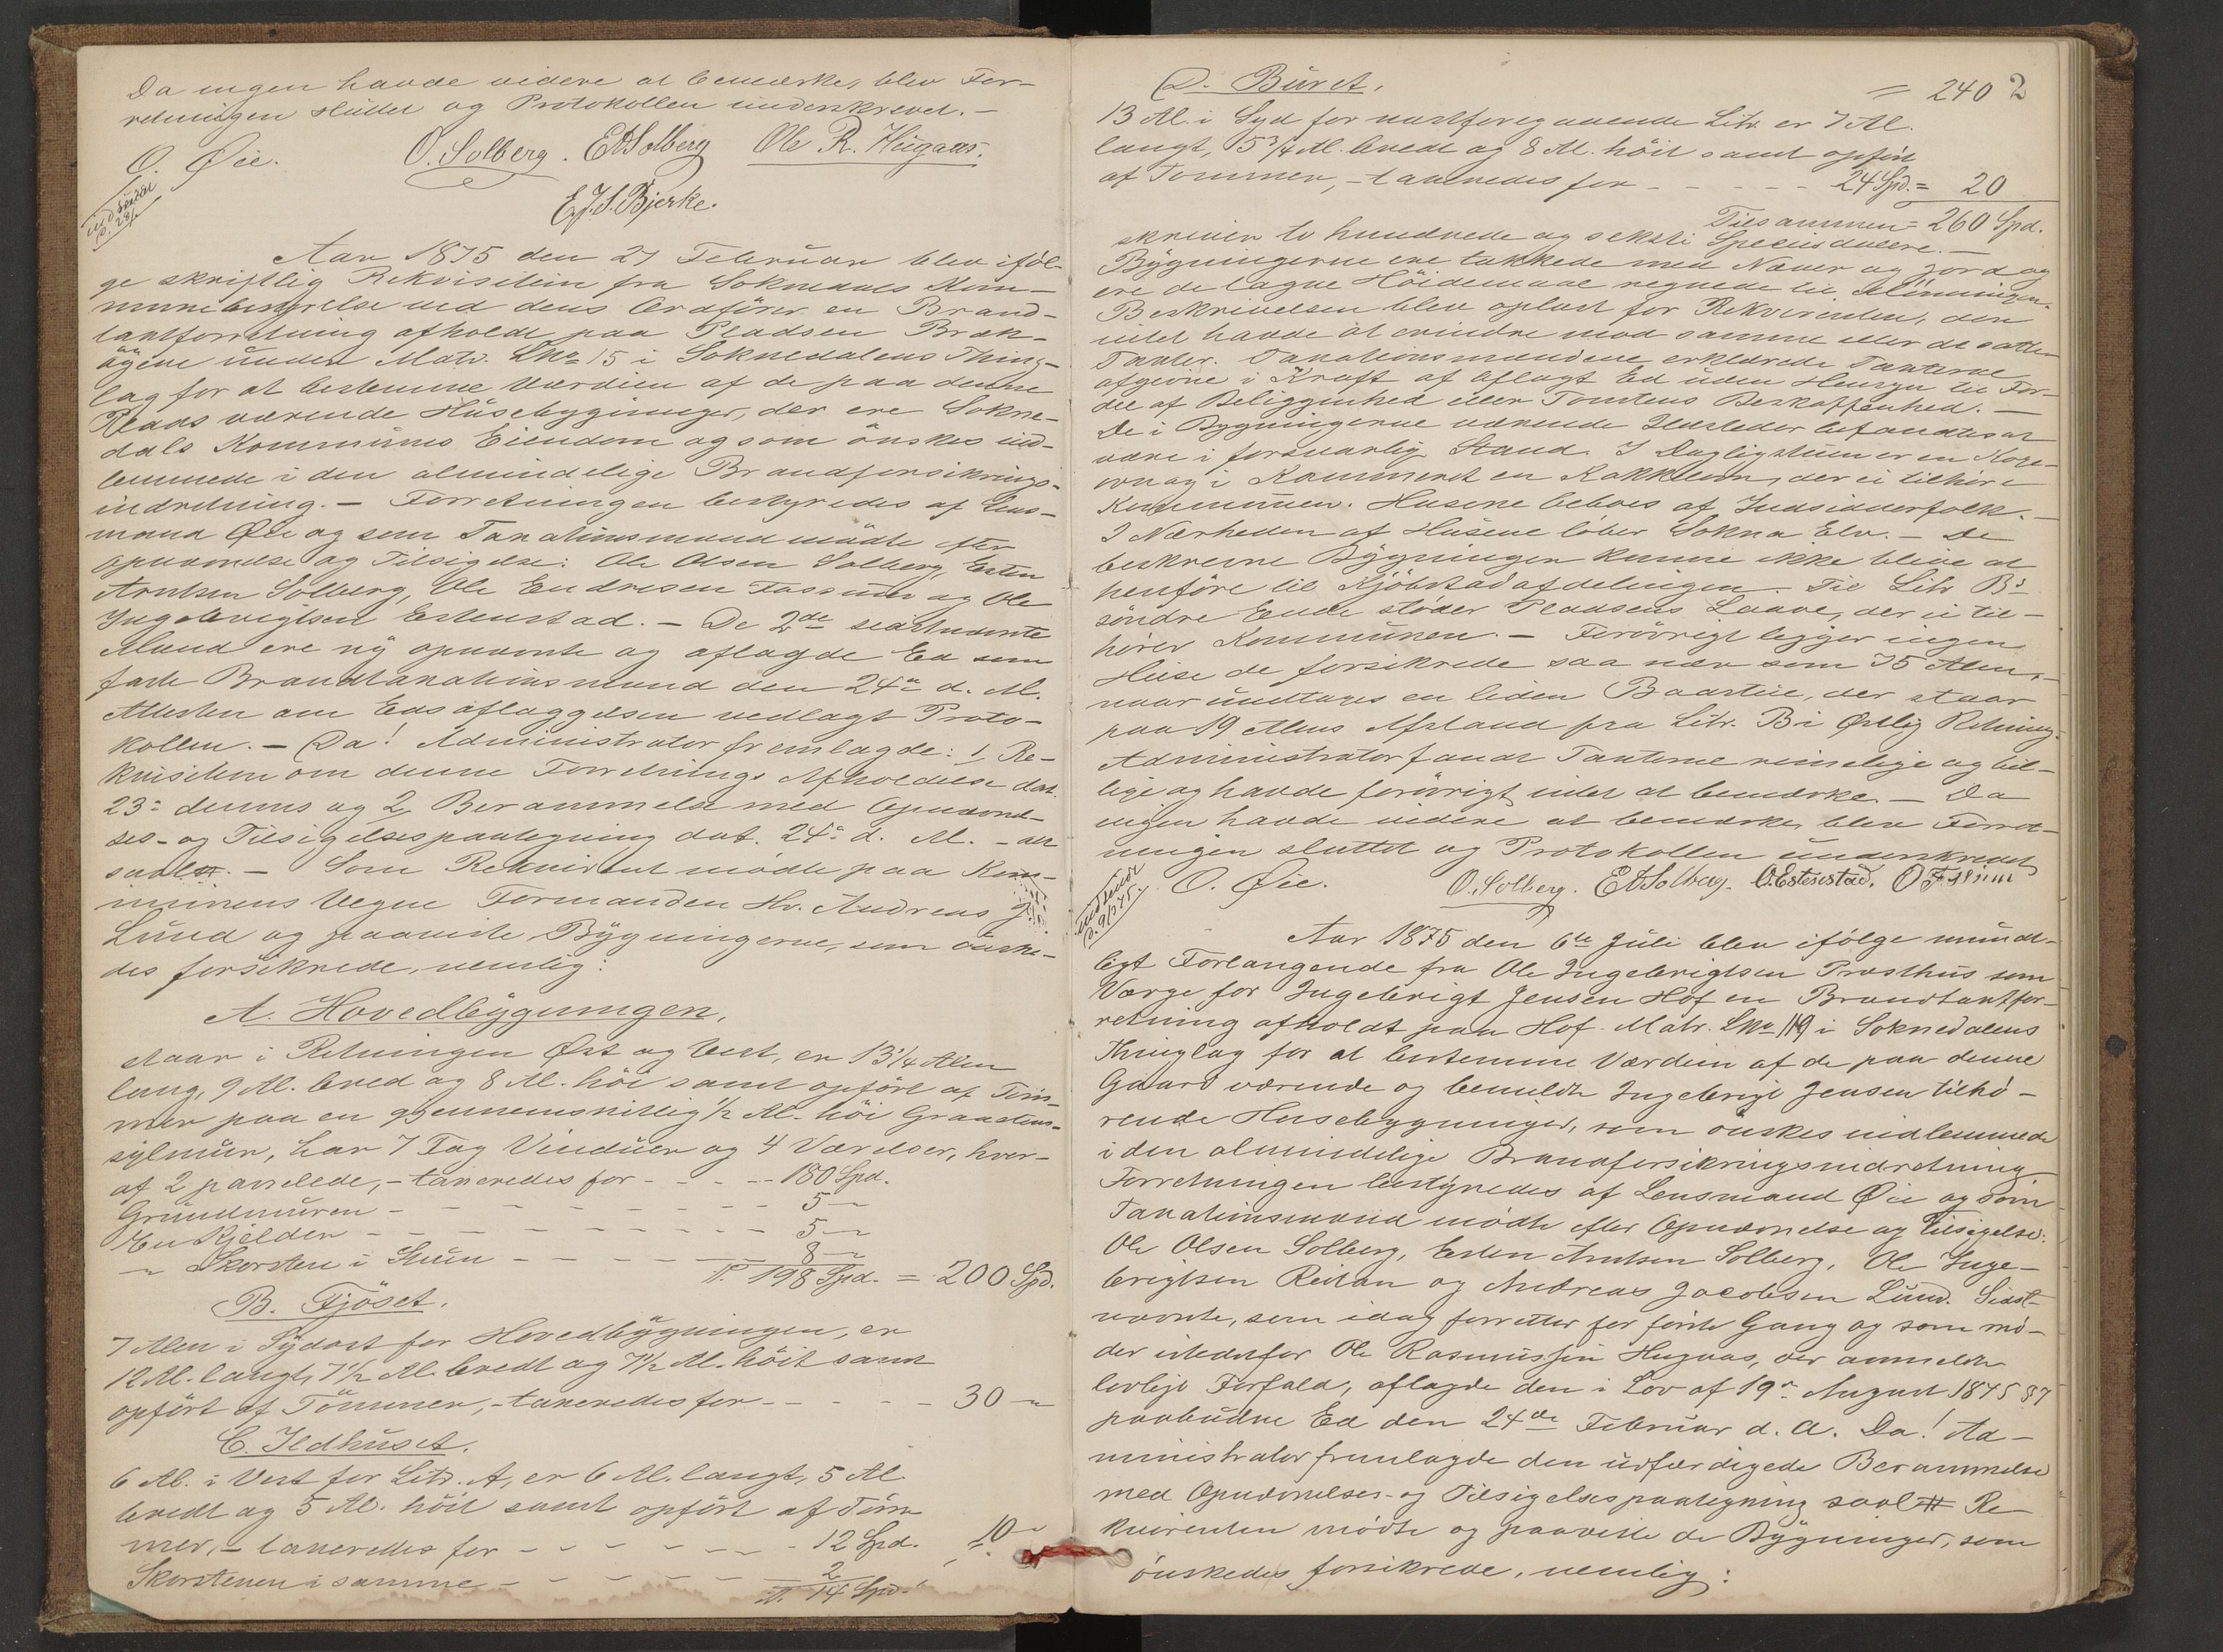 Da ingen havde videre at bemærke, blev For-
retningen sluttet og Protokollen underskrevet. -
O. Øie. O. Solberg. E A Solberg Ole R. Hugaas.
E. J. S. Bjerke.
Aar 1875 den 27 Februar blev iføl-
ge skriftlig Rekvisition fra Soknedals Kom-
munebestyrelse ved dens Ordfører en Brand-
taxtforretning afholdt paa Pladsen Bræk-
øgene under Matr. LNo 15 i Soknedalens Thing-
lag for at bestemme Værdien af de paa denne
Plads værende Husebygninger, der ere Sokne-
dals Kommunes Eiendom og som ønskes ind-
lemmede i den almindelige Brandforsikrings-
indretning. - Forretningen bestyredes af Lens-
mand Øie og som Taxationsmænd mødte efter
Opnævnelse og Tilsigelse: Ole Olsen Solberg, Esten
Arntsen Solberg, Ole Endresen Fossum og Ole
Ingebrigtsen Estenstad. - De 2de sidstnævnte
Mænd ere ny opnævnte og aflagde Ed som
faste Brandtaxationsmænd den 24de d. M.
Attesten om Edsaflæggelsen vedlagt Proto-
kollen. - Da! Administrator fremlagde: 1, Re-
kvisition om denne Forretnings Afholdelse dat.
23de dennes og 2, Berammelse med Opnævnel-
ses- og Tilsigelsespaategning dat. 24de d. M. - alt
saal. - Som Rekvirent mødte paa Kom-
munens Vegne Formanden Hr. Andreas J.
Lund og paaviste Bygningerne, som ønske-
des forsikrede, nemlig:
A. Hovedbygningen,
staar i Retningen Øst og Vest, er 13 1/4 Alen
lang, 9 Al. bred og 8 Al. høi samt opført af Tøm-
mer paa en gjennemsnitlig 1/2 Al. høi Graastens-
sylmur, har 7 Fag Vinduer og 4 Værelser, hver-
af 2 panelede, - taxeredes for - - - - 180 Spd.
Grundmuren - - - - - - - 5 "
En Kjelder - - - - - - - 5 "
" Skorsten i Stuen - - - - - 8 "
T. 198 Spd. = 200 Spd.
B. Fjöset.
7 Alen i Sydost for Hovedbygningen, er
12 Al. langt, 7 1/2 Al. bredt og 7 1/2 Al. höit samt
opført af Tömmer, - taxeredes for - - - - - 30 "
C. Ildhuset.
6 Al. i Vest for Litr. A, er 6 Al. langt, 5 Al.
bredt og 5 Al. höit samt opført af Töm-
mer, - taxeredes for - - - - - - 12 Spd. 10 "
Skorstenen i samme - - - - - 2
T. 14 Spd.
D. Buret. = 240 2
13 Al. i Syd for næstforegaaende Litr. er 7 Al.
langt, 5 3/4 Al. bredt og 8 Al. höit samt opført
af Tømmer, - taxeredes for - - - - - 24 Spd. = 20
Tilsammen = 260 Spd.
skriver to hundrede og seksti Speciesdalere. -
Bygningerne ere tækkede med Næver og Jord og
ere de tagne Höidemaal regnede til Mønningen.
Beskrivelsen blev oplæst for Rekvirenten, der
intet havde at erindre mod samme eller de satte
Taxter. Taxationsmændene erklærede Taxterne
afgivne i Kraft af aflagt Ed uden Hensyn til For-
del af Beliggenhed eller Tomtens Beskaffenhed. -
De i Bygningerne værende Ildsteder befandtes at
være i forsvarlig Stand. I Dagligstuen er en Kogeovn
og i Kammeret en Kakkelovn, der ei tilhøre
Kommunen. Husene beboes af Indsidderfolk. -
I Nærheden af Husene løber Sokna Elv. - De
beskrevne Bygninger kunne ikke blive at
henføre til Kjöbstadafdelingen. Til Litr Bs
söndre Ende støder Pladsens Laave, der ei til-
hører Kommunen. - Forövrigt ligger ingen
Huse de forsikrede saa nær som 75 Alen,
naar undtages en liden Baarstue, der staar
paa 19 Alens Afstand fra Litr. B i Østlig Retning.
Administrator fandt Taxterne rimelige og bil-
lige og havde forövrigt intet at bemærke. - Da
ingen havde videre at bemærke, blev Forret-
ningen sluttet og Protokollen underskrevet
O. Øie. O. Solberg. E A Solberg. O. Estenstad. O Fossum
Aar 1875 den 6te Juli blev ifölge mundt-
ligt Forlangende fra Ole Ingebrigtsen Præsthus som
Værge for Ingebrigt Jensen Hof en Brandtaxtfor-
retning afholdt paa Hof Matr. LNo 119 i Soknedalens
Thinglag for at bestemme Værdien af de paa denne
Gaard værende og bemeldte Ingebrigt Jensen tilhö-
rende Husebygninger, som önskes indlemmede
i den almindelige Brandforsikringsindretning
Forretningen bestyredes af Lensmand Øie og som
Taxationsmænd mödte efter Opnævnelse og Tilsigelse:
Ole Olsen Solberg, Esten Arntsen Solberg, Ole Inge-
brigtsen Reitan og Andreas Jacobsen Lund. Sidst-
nævnte, som idag forretter for förste Gang og som mö-
der istedetfor Ole Rasmussen Hugaas, der anmeldte
lovligt Forfald, aflagde den i Lov af 19de August 1845 § 7
paabudne Ed den 24de Februar d. A. Da! Ad-
ministrator fremlagde den udfærdigede Berammelse
med Opnævnelses- og Tilsigelsespaategning saal. Re-
kvirenten mödte og paaviste de Bygninger, som
önskedes forsikrede, nemlig: